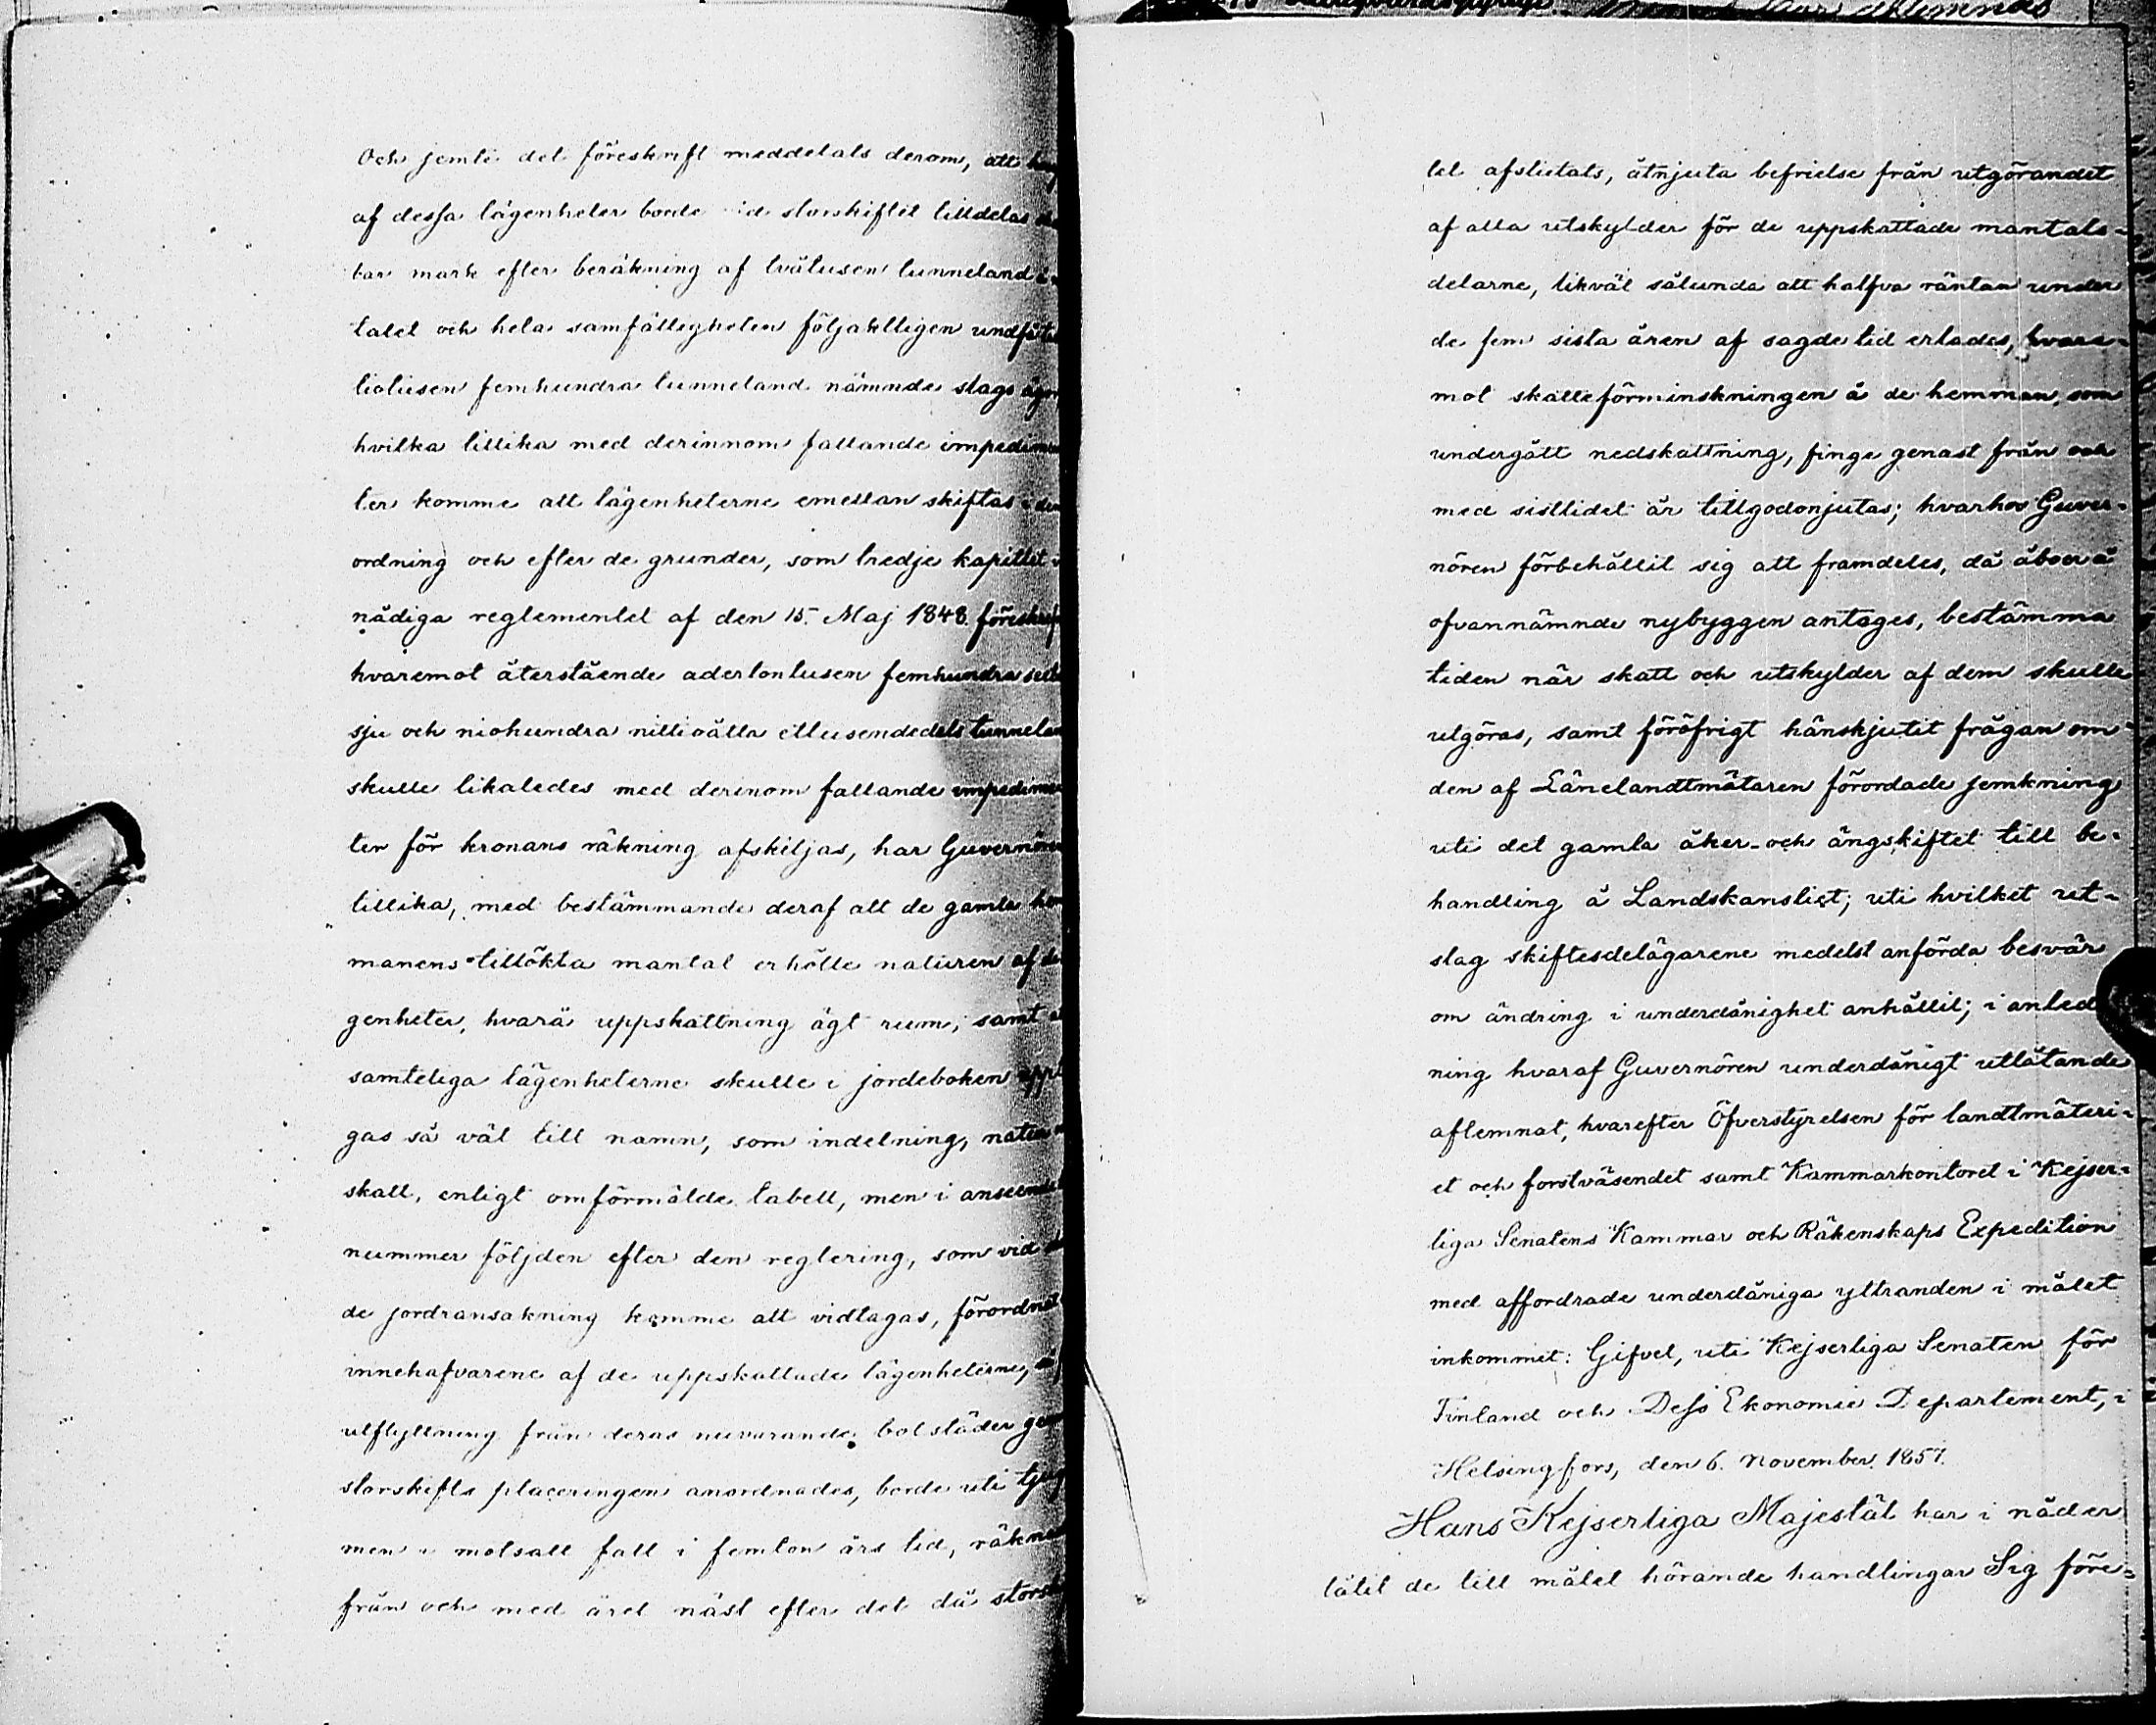 Och jemte det föreskrift meddelats derom, att
af dessa lägenheter borde vid storskiftet tilldelas
bar mark efter beräkning af tvåtusen tunneland i
talet och hela samfälligheten följaktligen undfå
tiotusen femhundra tunneland nämnde slags
hvilka tillika med derinnom fallande impedimen
ter komme att lägenheterne emellan skiftas i den
ordning och efter de grunder, som tredje kapitlet i
nådiga reglementet af den 15. Maj 1848. föreskrif
hvaremot återstående adertontusen femhundra
sju och niohundra nittioåtta ettusendedels tunnelan
skulle likaledes med derinom fallande impedimen
ter för kronans räkning afskiljas, har Guvernören
tillika, med bestämmande deraf att de gamla hem
manens tillökta mantal erhölle naturen af de
genheter, hvarå uppskattning ägt rum, samt at
samteliga lägenheterne skulle i jordeboken uppt
gas så väl till namn, som indelning, natur
skatt, enligt omförmälde tabell, men i anseende
nummer följden efter den reglering, som vid
de jordransakning komme att vidtagas, förordnat
innehafvarene af de uppskattade lägenheterne,
utflyttning från deras nuvarande bolstäder gen
storskifts placeringen anordnades, borde uti tjug
men i motsatt fall i femton års tid, räkna
från och med året näst efter det då storsk
tet afslutats, åtnjuta befrielse från utgörandet
af alla utskylder för de uppskattade mantals-
delarne, likväl sålunda att halfva räntan under
de fem sista åren af sagde tid erlades, hvare-
mot skatteförminskningen å de hemman, som
undergått nedskattning, finge genast från och
med sisttidet år tillgodonjutas; hvarhos Guver-
nören förbehållit sig att framdeles, då åboer å
ofvannämnde nybyggen antages, bestämma
tiden när skatt och utskylder af dem skulle
utgöras, samt föröfrigt hänskjutit frågan om
den af Länelandtmätaren förordade jemkning
uti det gamla åker- och ängskiftet till be-
handling å Landskansliet; uti hvilket ut-
slag skiftesdelägarene medelst anförda besvär
om ändring i underdånighet anhållit; i anled
ning hvaraf Guvernören underdånigt utlåtande
aflemnat, hvarefter Öfverstyrelsen för landtmäteri-
et och forstväsendet samt Kammarkontoret i Kejser-
liga Senatens Kammar och Räkenskaps Expedition
med affordrade underdåniga yttranden i målet
inkommit: Gifvet, uti Kejserliga Senaten för
Finland och Dess Ekonomie Departement, i
Helsingfors, den 6. November. 1857.
Hans Kejserliga Majestät har i nåder
låtit de till målet hörande handlingar Sig före-